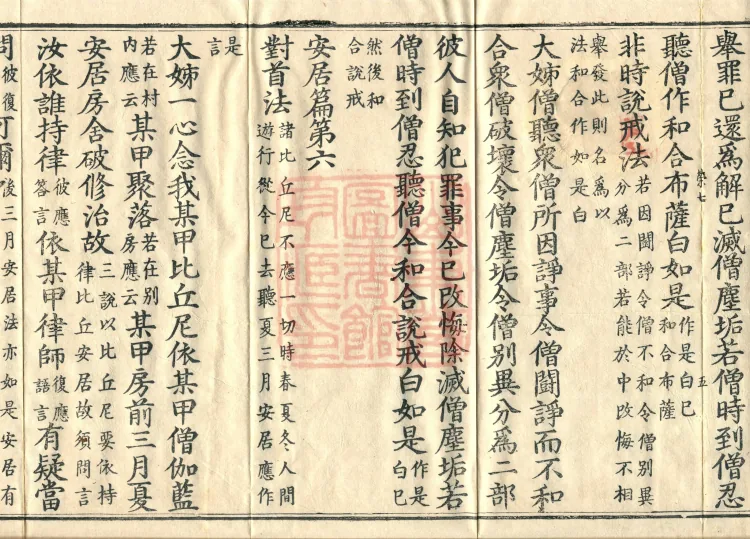 舉罪已還爲解已滅僧塵垢若僧時到僧忍
聽僧作和合布薩白如是作是白已和合布薩
非時說戒法若因鬪諍令僧不和令僧別異分爲二部若能於中改悔不相
舉發此則名爲以法和合作如是白
大姊僧聽衆僧所因諍事令僧鬪諍而不和
合衆僧破壞令僧塵垢令僧別異分爲二部
彼人自知犯罪事今已改悔除滅僧塵垢若
僧時到僧忍聽僧今和合說戒白如是作是白已
然後和合說戒
安居篇第六
對首法諸比丘尼不應一切時春夏冬人間遊行從今已去聽夏三月安居應作
是言
大姊一心念我某甲比丘尼依某甲僧伽藍
若在村內應云某甲聚落若在別房應云某甲房前三月夏
安居房舍破修治故三說以比丘尼要依持律比丘安居故須問言
汝依誰持律彼應答言依某甲律師復應語言有疑當
問彼復可爾後三月安居法亦如是安居有